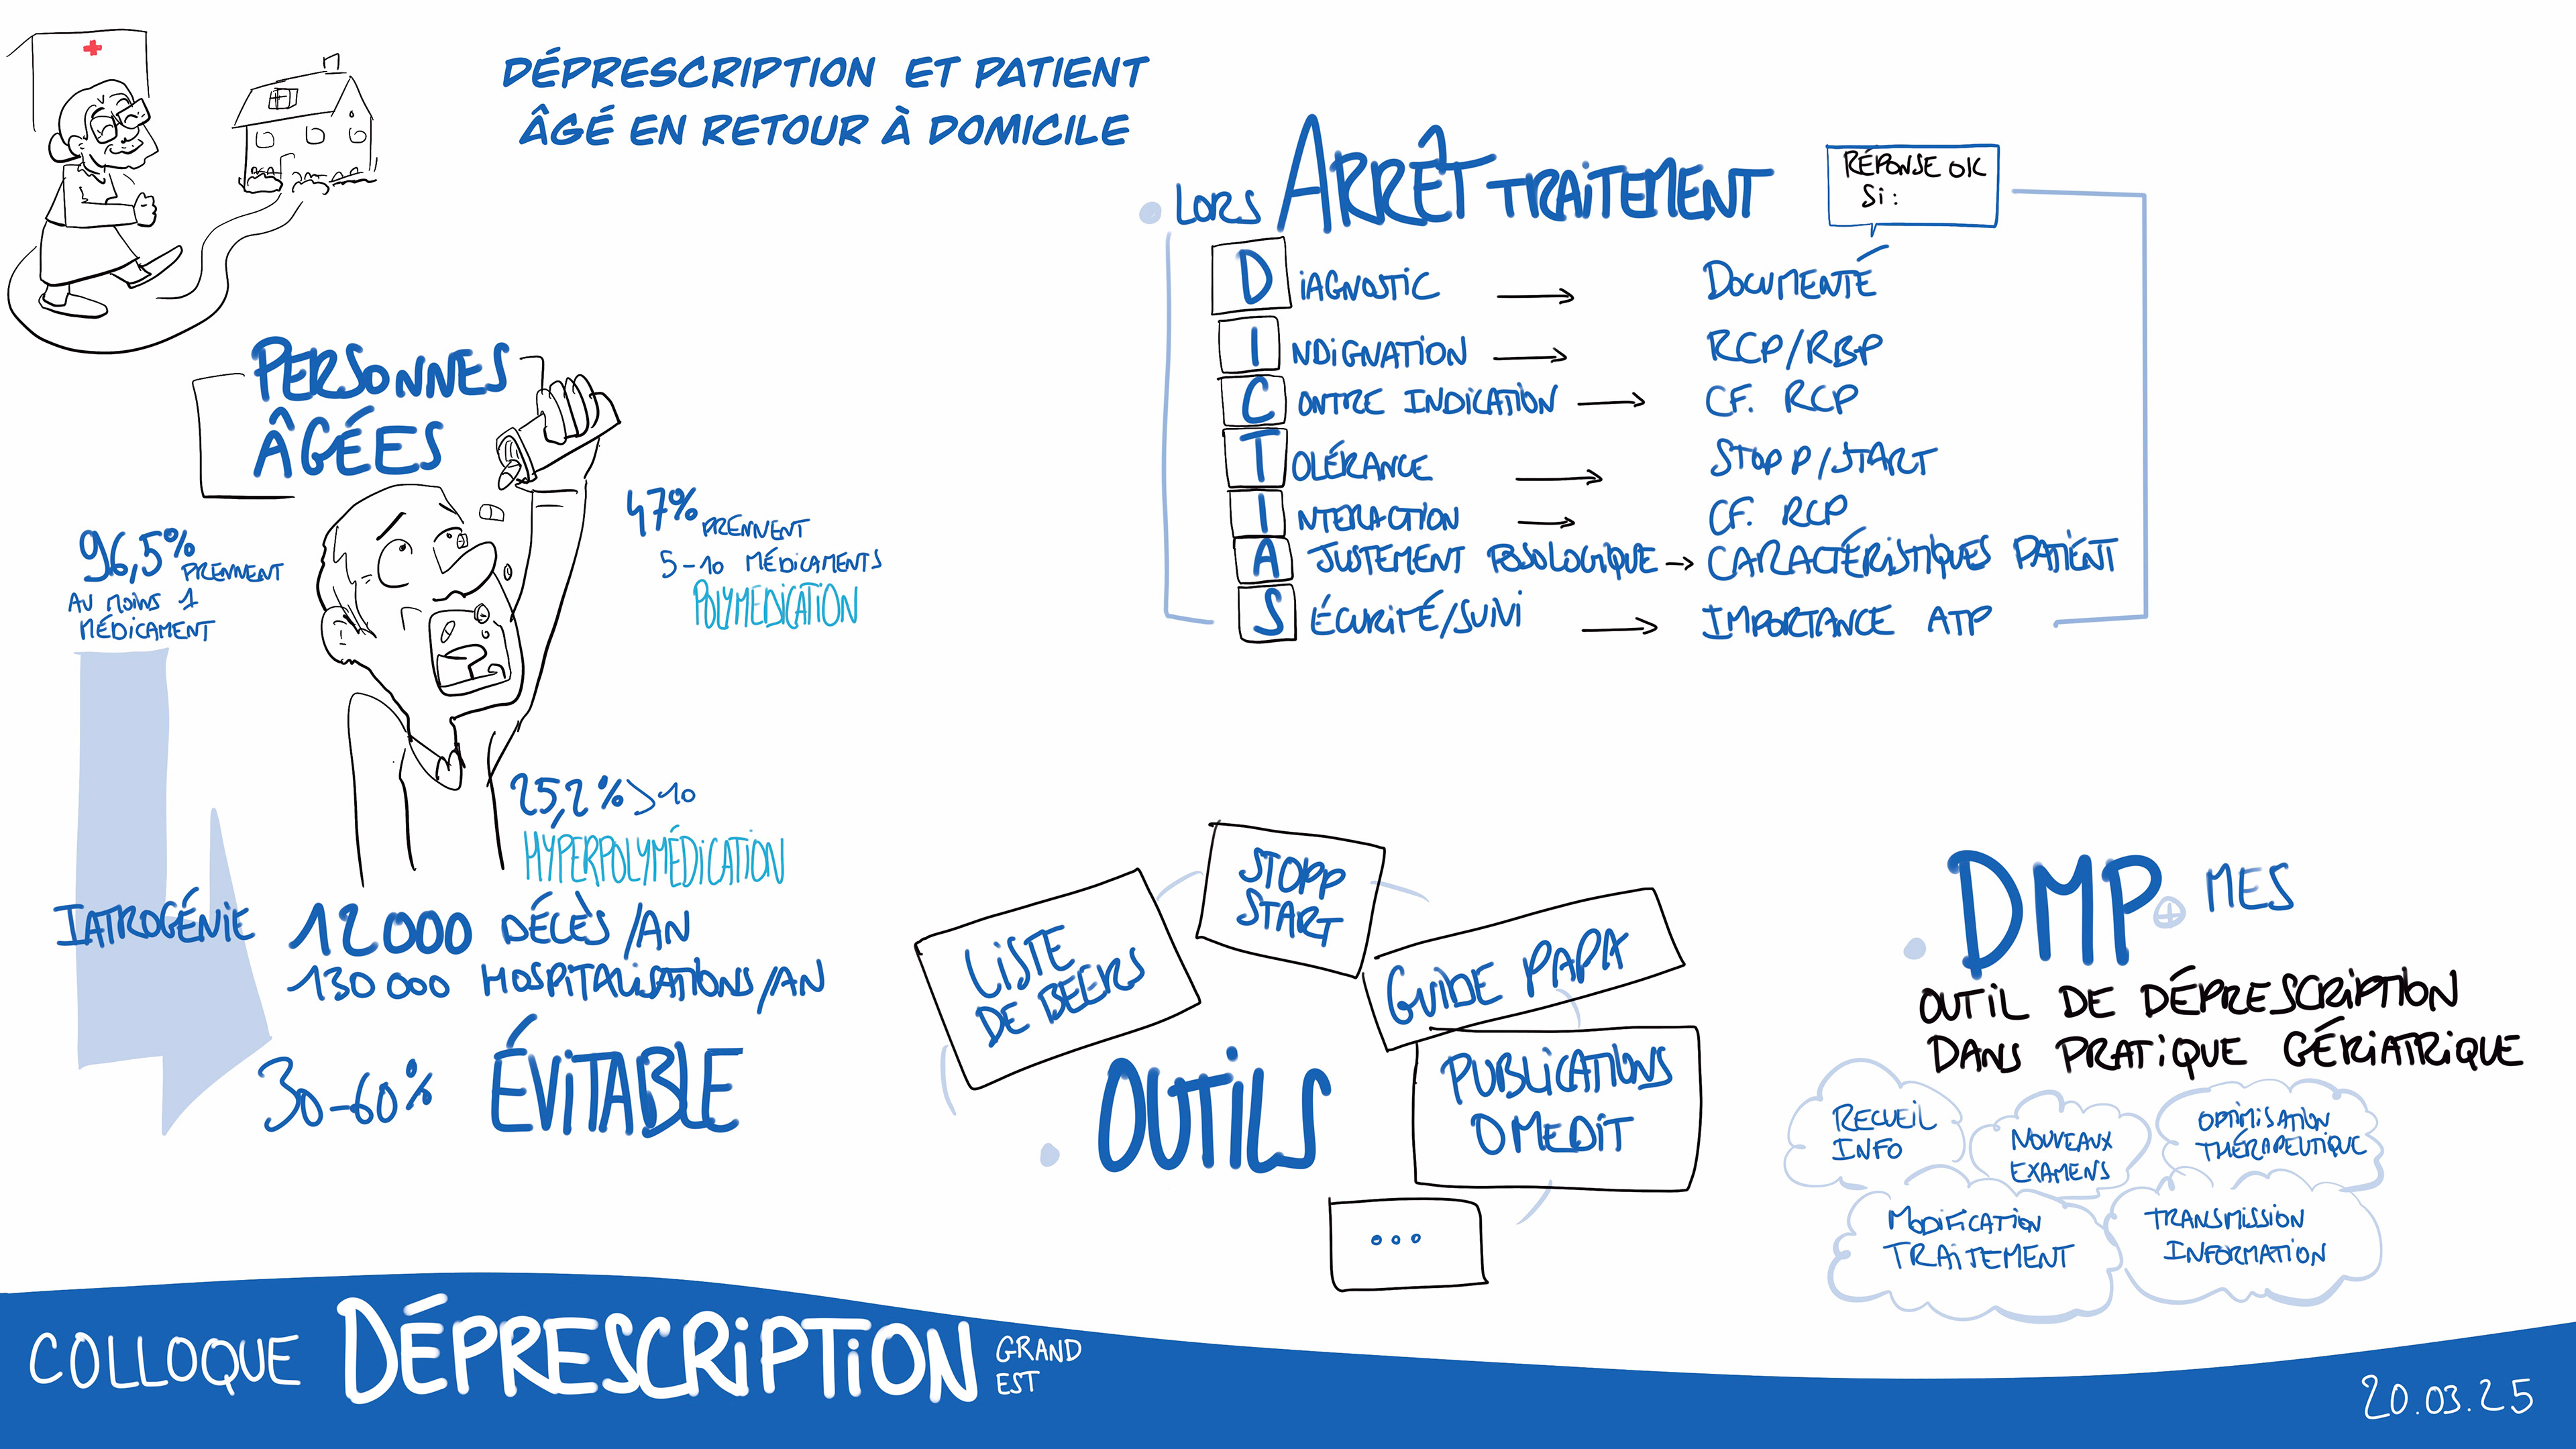 DÉPRESCRIPTION ET PATIENT
ÂGÉ EN RETOUR À DOMICILE
PERSONNES
ÂGÉES
96,5% PRENNENT
AU MOINS 1
MÉDICAMENT
47% PRENNENT
5-10 MÉDICAMENTS
POLYMEDICATION
25,2% >10
HYPERPOLYMÉDICATION
IATROGÉNIE
12000 DÉCÈS/AN
130 000 HOSPITALISATIONS/AN
30-60% ÉVITABLE
LORS ARRÊT TRAITEMENT
RÉPONSE OK
Si :
DIAGNOSTIC → DOCUMENTÉ
INDIGNATION → RCP/RBP
CONTRE INDICATION → CF. RCP
TOLÉRANCE → STOPP/START
INTERACTION → CF. RCP
AJUSTEMENT POSOLOGIQUE → CARACTÉRISTIQUES PATIENT
SÉCURITÉ/SUIVI → IMPORTANCE ATP
LISTE
DE BEERS
STOPP
START
GUIDE PAPA
PUBLICATIONS
OMEDIT
...
OUTILS
DMP + MES
OUTIL DE DÉPRESCRIPTION
DANS PRATIQUE GÉRIATRIQUE
RECUEIL
INFO
NOUVEAUX
EXAMENS
OPTIMISATION
THÉRAPEUTIQUE
MODIFICATION
TRAITEMENT
TRANSMISSION
INFORMATION
COLLOQUE DÉPRESCRIPTION GRAND
EST
20.03.25